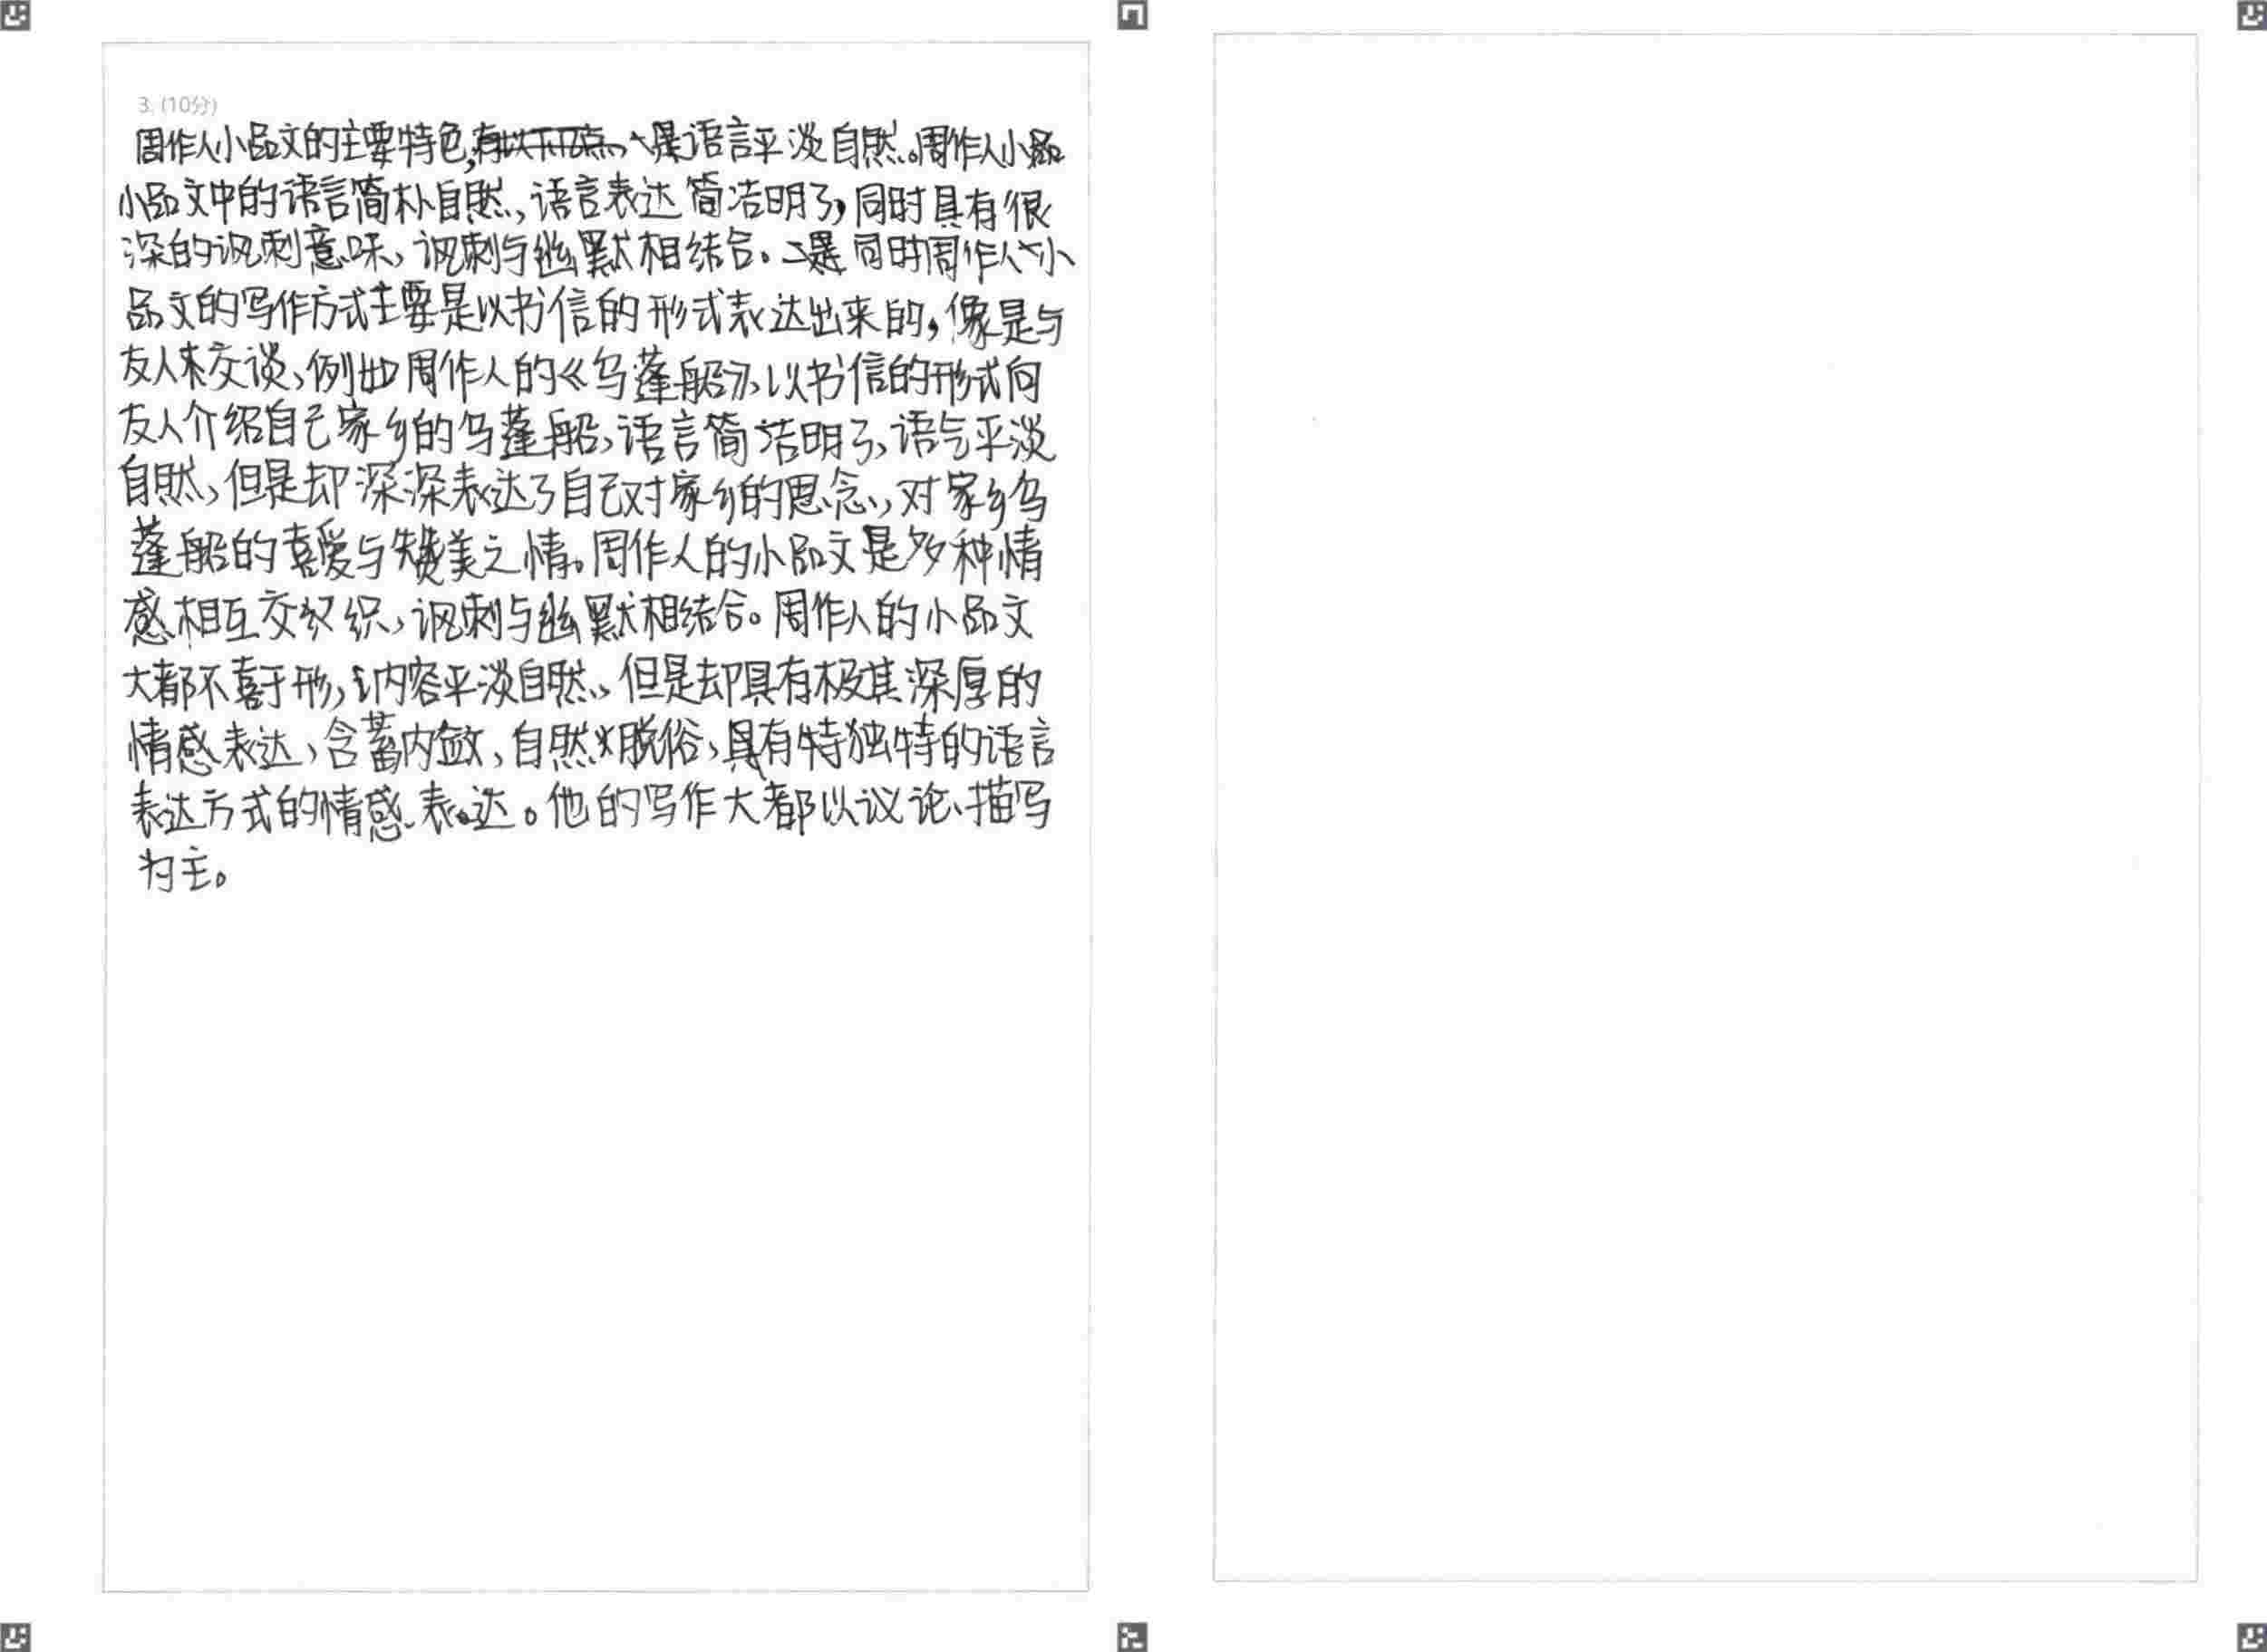 3. (10分)
周作人小品文的主要特色,是语言平淡自然。周作人小品
小品文中的语言简朴自然,语言表达简洁明了,同时具有很
深的讽刺意味,讽刺与幽默相结合。二是同时周作人小
品文的写作方式主要是以书信的形式表达出来的,像是与
友人来交谈,例如周作人的《乌蓬船》,以书信的形式向
友人介绍自己家乡的乌蓬船,语言简洁明了,语气平淡
自然,但是却深深表达了自己对家乡的思念,对家乡乌
蓬船的喜爱与赞美之情。周作人的小品文是多种情
感相互交织,讽刺与幽默相结合。周作人的小品文
大都不喜于形,内容平淡自然,但是却具有极其深厚的
情感表达,含蓄内敛,自然脱俗,具有独特的语言
表达方式的情感表达。他的写作大都以议论、描写
为主。